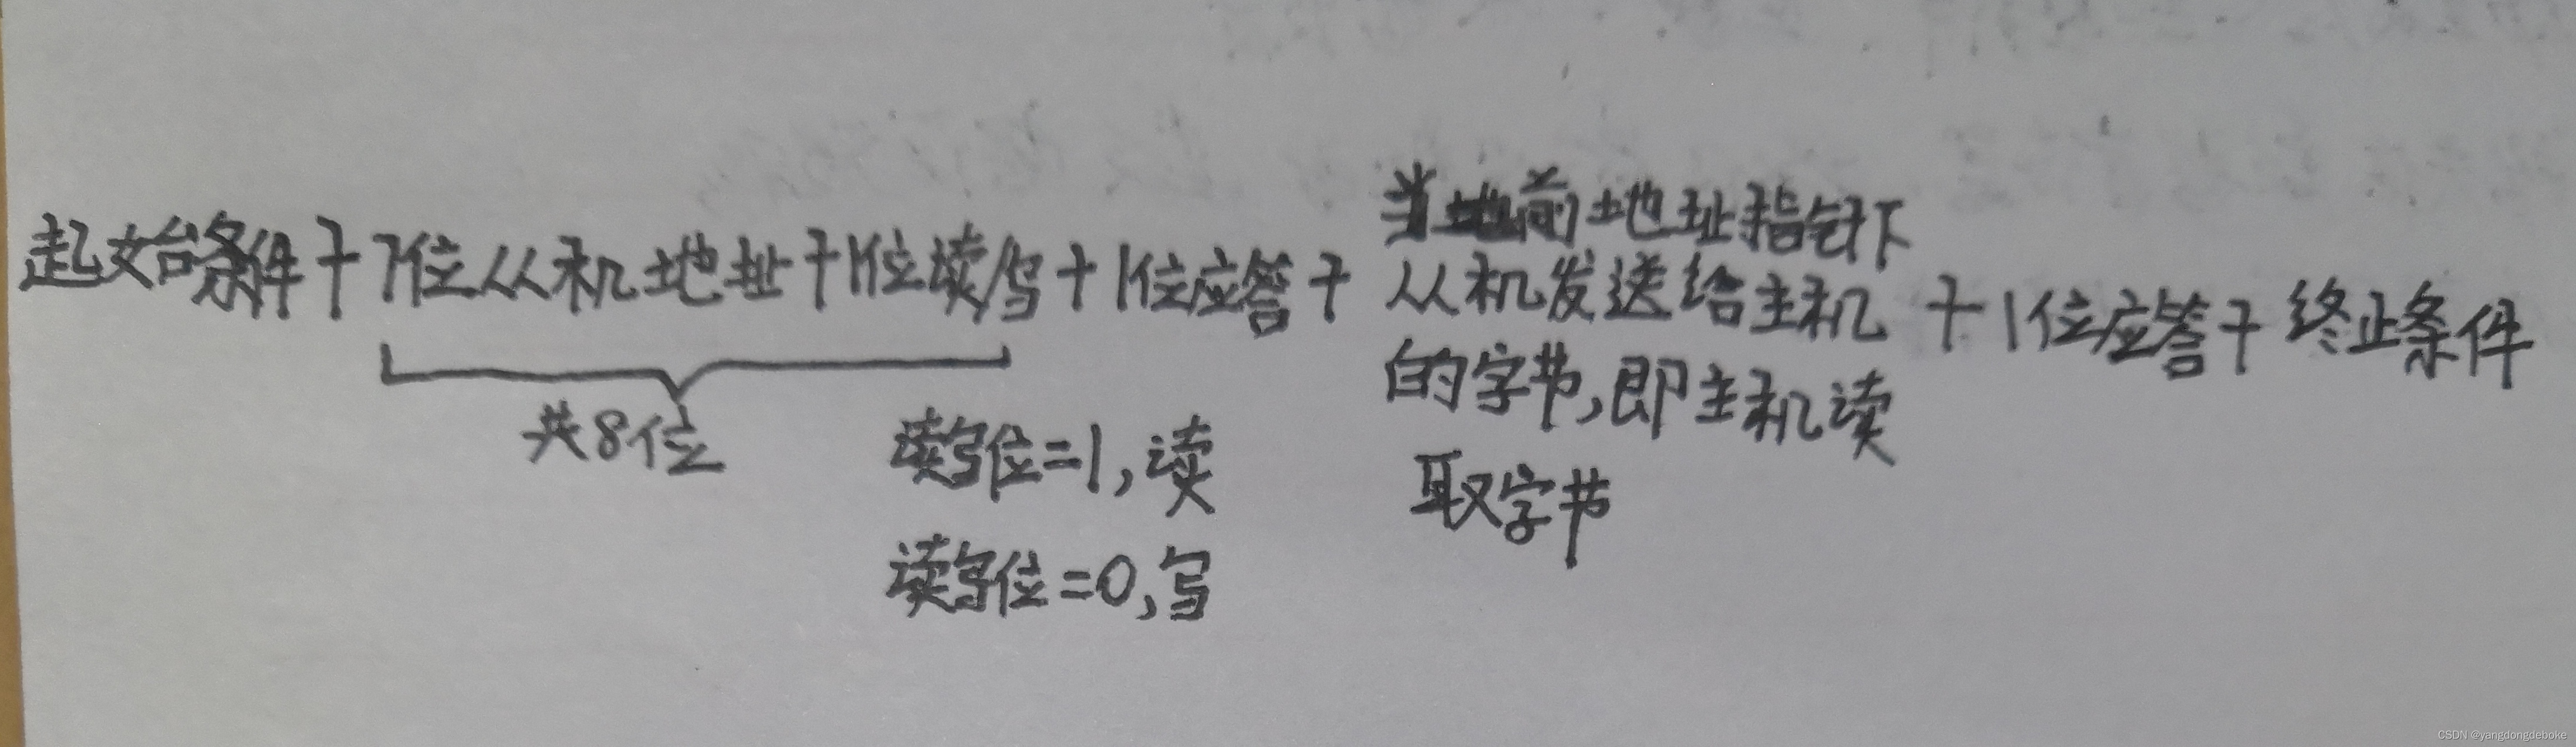 起始条件+7位从机地址+1位读/写+1位应答+
当前地址指针下
从机发送给主机
的字节,即主机读
取字节
+1位应答+终止条件
共8位
读写位=1,读
读写位=0,写
CSDN @yangdongdeboke